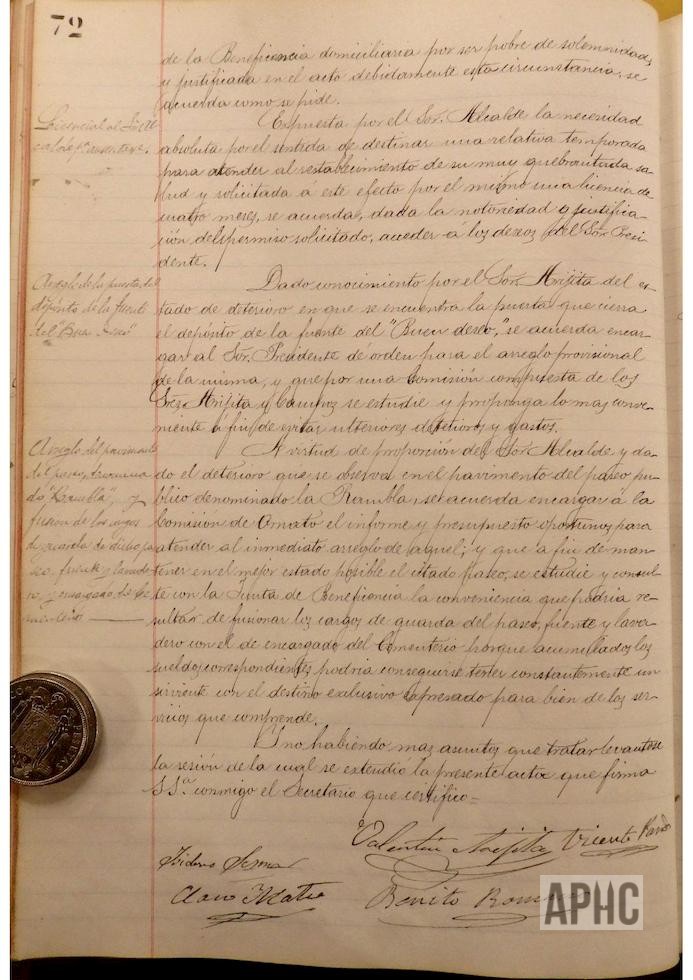 72
de la Beneficencia domiciliaria por ser pobre de solemnidad,
y justificada en el acto debidamente esta circunstancia, se
acuerda como se pide.
Licencia al Sor. Al
calde
Expuesta por el Sor. Alcalde la necesidad
absoluta por el sentida de destinar una relativa temporada
para atender al restablecimiento de su muy quebrantada sa-
lud y solicitada á este efecto por el mismo una licencia de
cuatro meses, se acuerda, dada la notoriedad y justifica-
ción del permiso solicitado, acceder á los deseos del Sor. Presi-
dente.
Arreglo de la puerta del
depósito de la fuente
del "Buen deseo"
Dado conocimiento por el Sor. Arijita del es-
tado de deterioro en que se encuentra la puerta que cierra
el depósito de la fuente del "Buen deseo," se acuerda encar-
gar al Sor. Presidente dé orden para el arreglo provisional
de la misma, y que por una Comisión compuesta de los
Sres. Arijita y Campos se estudie y proponga lo mas conve-
niente á fin de evitar ulteriores deterioros y gastos.
Arreglo del pavimento
del paseo, denomina
do "Rambla", y
fusión de los cargos
de guarda de dicho pa
seo, fuente y lavade
ro, y encargado del Ce
menterio
A virtud de proporción del Sor. Alcalde y da-
do el deterioro que se observa en el pavimento del paseo pu-
blico denominado la Rambla, se acuerda encargar á la
Comisión de Ornato el informe y presupuesto oportunos para
atender al inmediato arreglo de aquel; y que a fin de man-
tener en el mejor estado posible el citado paseo, se estudie y consul-
te con la Junta de Beneficencia la conveniencia que podria re-
sultar de fusionar los cargos de guarda del paseo, fuente y lava-
dero con el de encargado del Cementerio porque acumulados los
sueldos correspondientes podria conseguirse tener constantemente un
sirviente con el destino exclusivo expresado para bien de los ser-
vicios que comprende.
Y no habiendo mas asuntos que tratar levantose
la sesión de la cual se extendió la presente acta que firma
S.Sa. conmigo el Secretario que certifico=
Valentin Arijita Vicente Pardo
Isidoro
Claro Mateo Benito
APHC
PESETAS